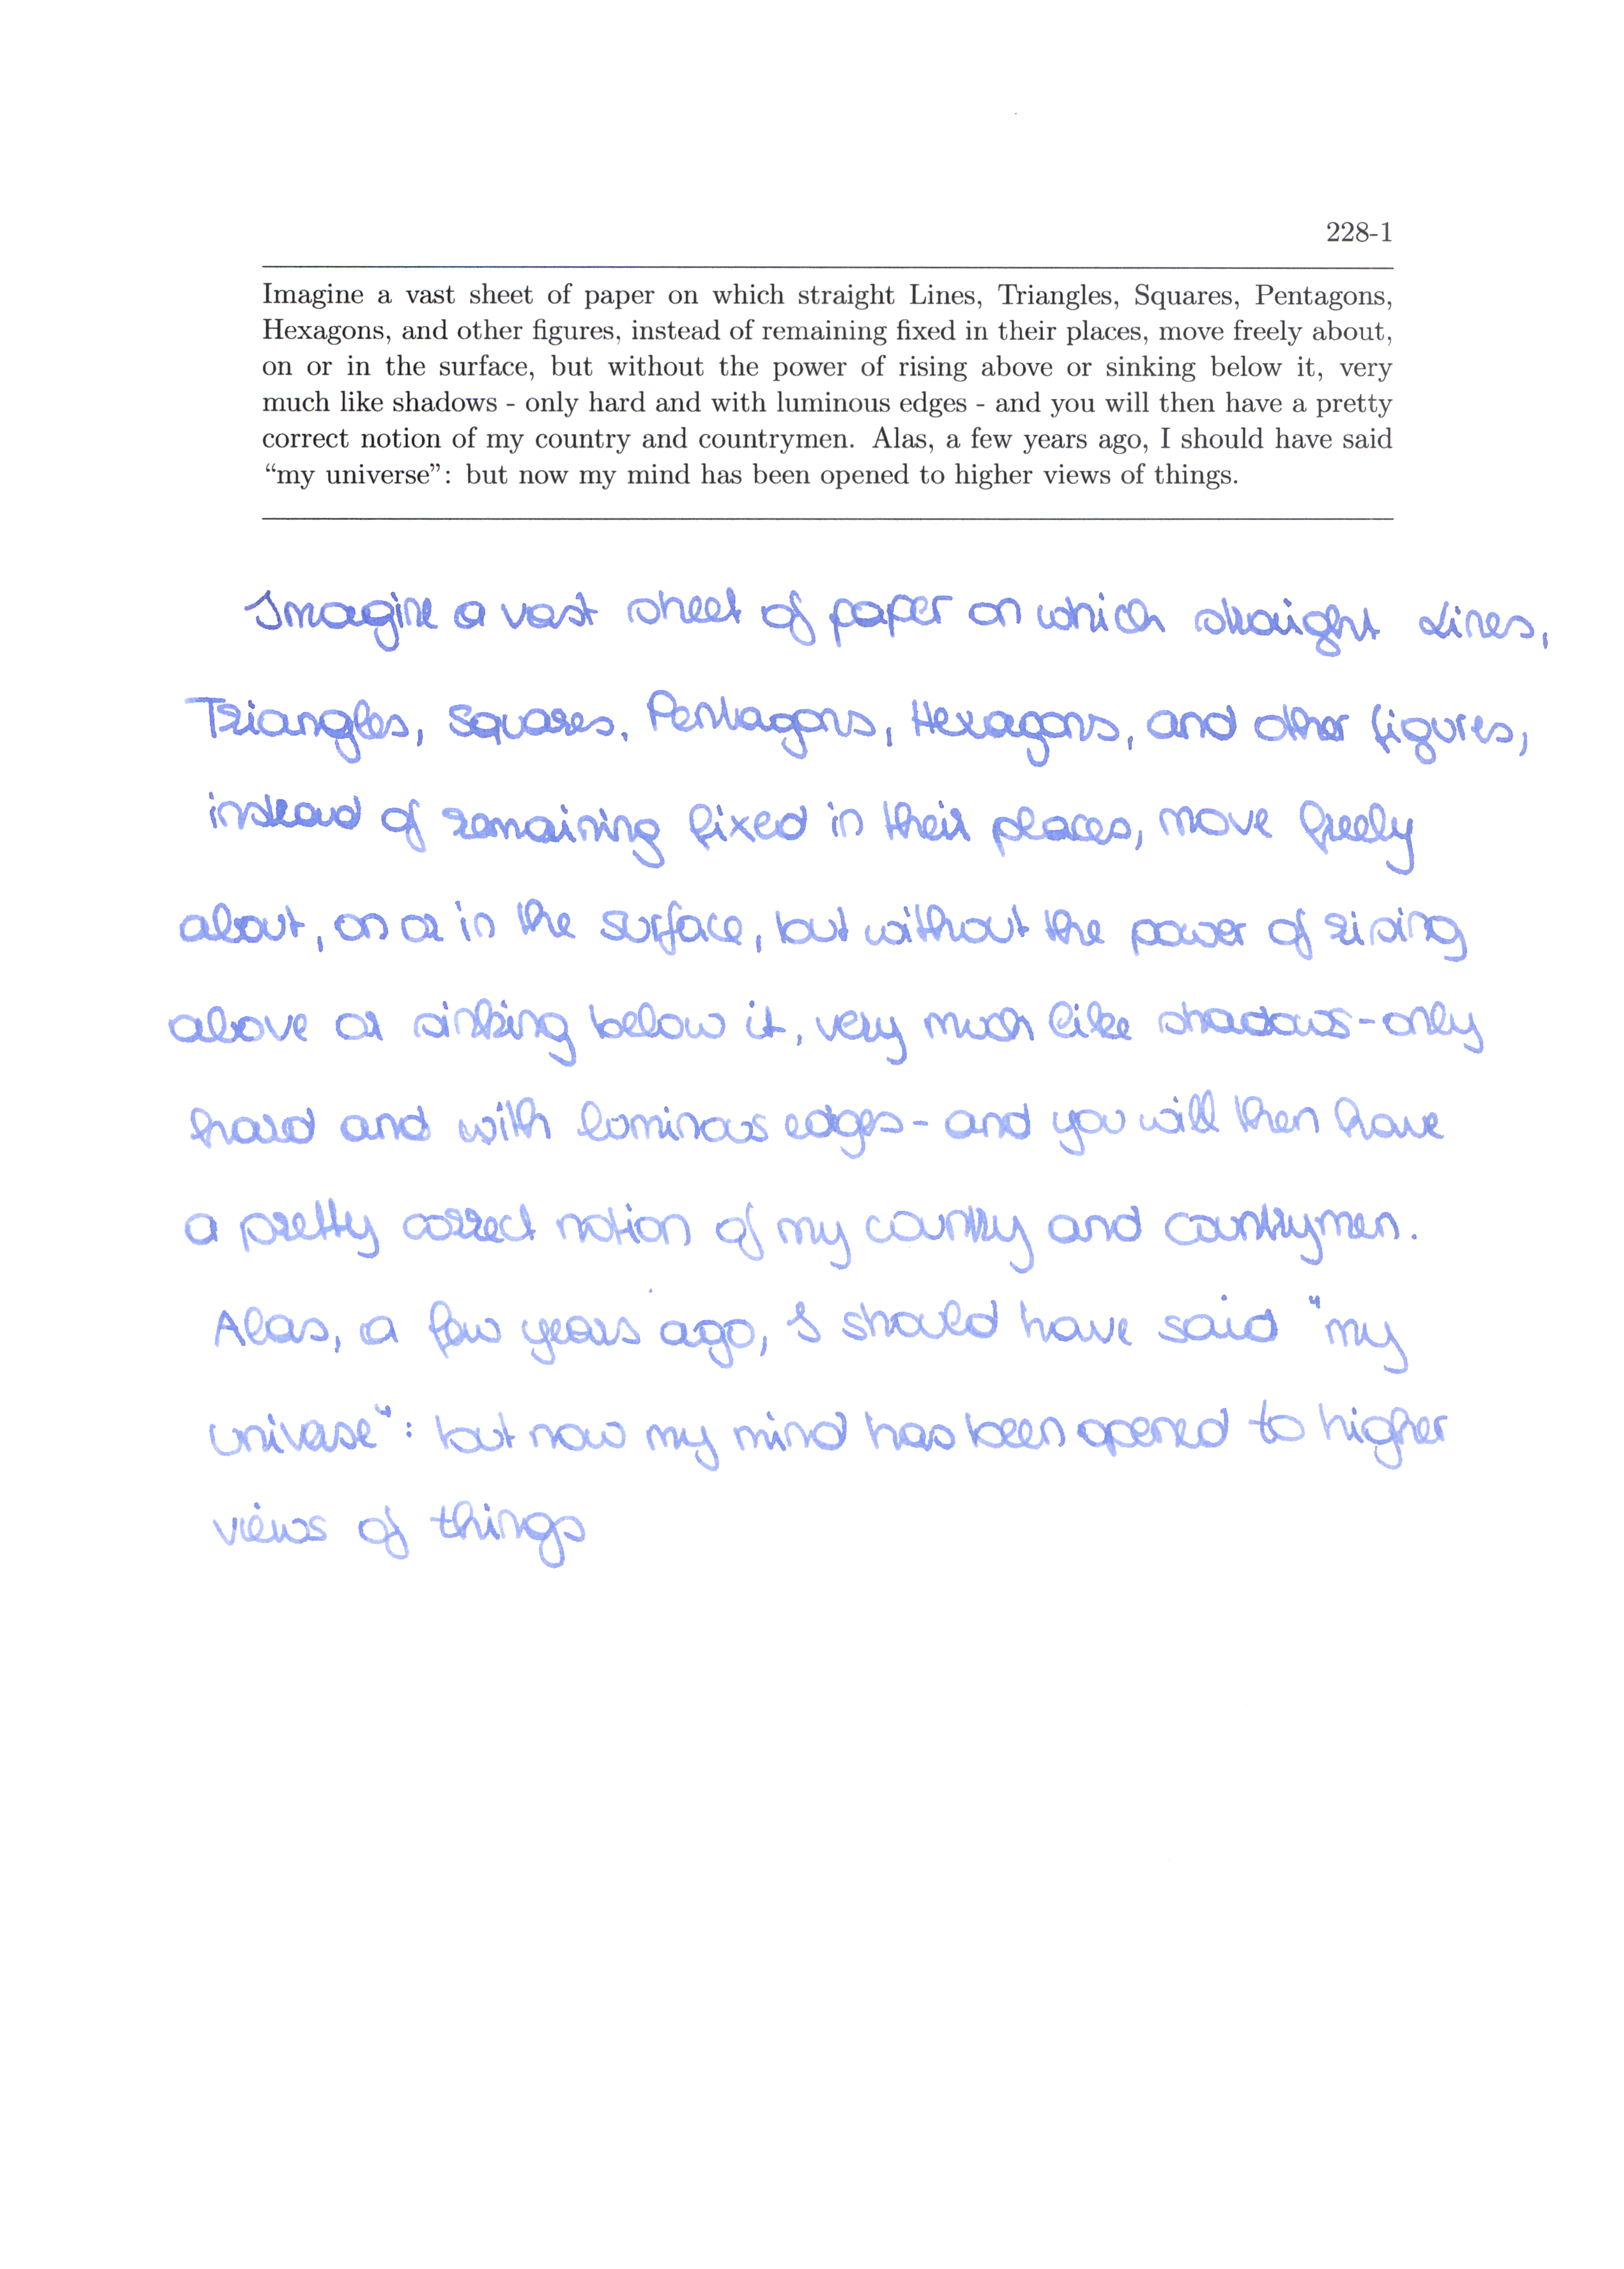 228-1
Imagine a vast sheet of paper on which straight Lines, Triangles, Squares, Pentagons,
Hexagons, and other figures, instead of remaining fixed in their places, move freely about,
on or in the surface, but without the power of rising above or sinking below it, very
much like shadows - only hard and with luminous edges - and you will then have a pretty
correct notion of my country and countrymen. Alas, a few years ago, I should have said
“my universe”: but now my mind has been opened to higher views of things.
Imagine a vast sheet of paper on which straight Lines,
Triangles, Squares, Pentagons, Hexagons, and other figures,
instead of remaining fixed in their places, move freely
about, on or in the surface, but without the power of rising
above or sinking below it, very much like shadows-only
hard and with luminous edges-and you will then have
a pretty correct notion of my country and countrymen.
Alas, a few years ago, I should have said "my
universe": but now my mind has been opened to higher
views of things